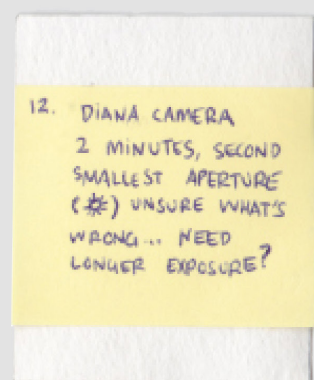 12. DIANA CAMERA
2 MINUTES, SECOND
SMALLEST APERTURE
() UNSURE WHAT'S
WRONG... NEED
LONGER EXPOSURE?